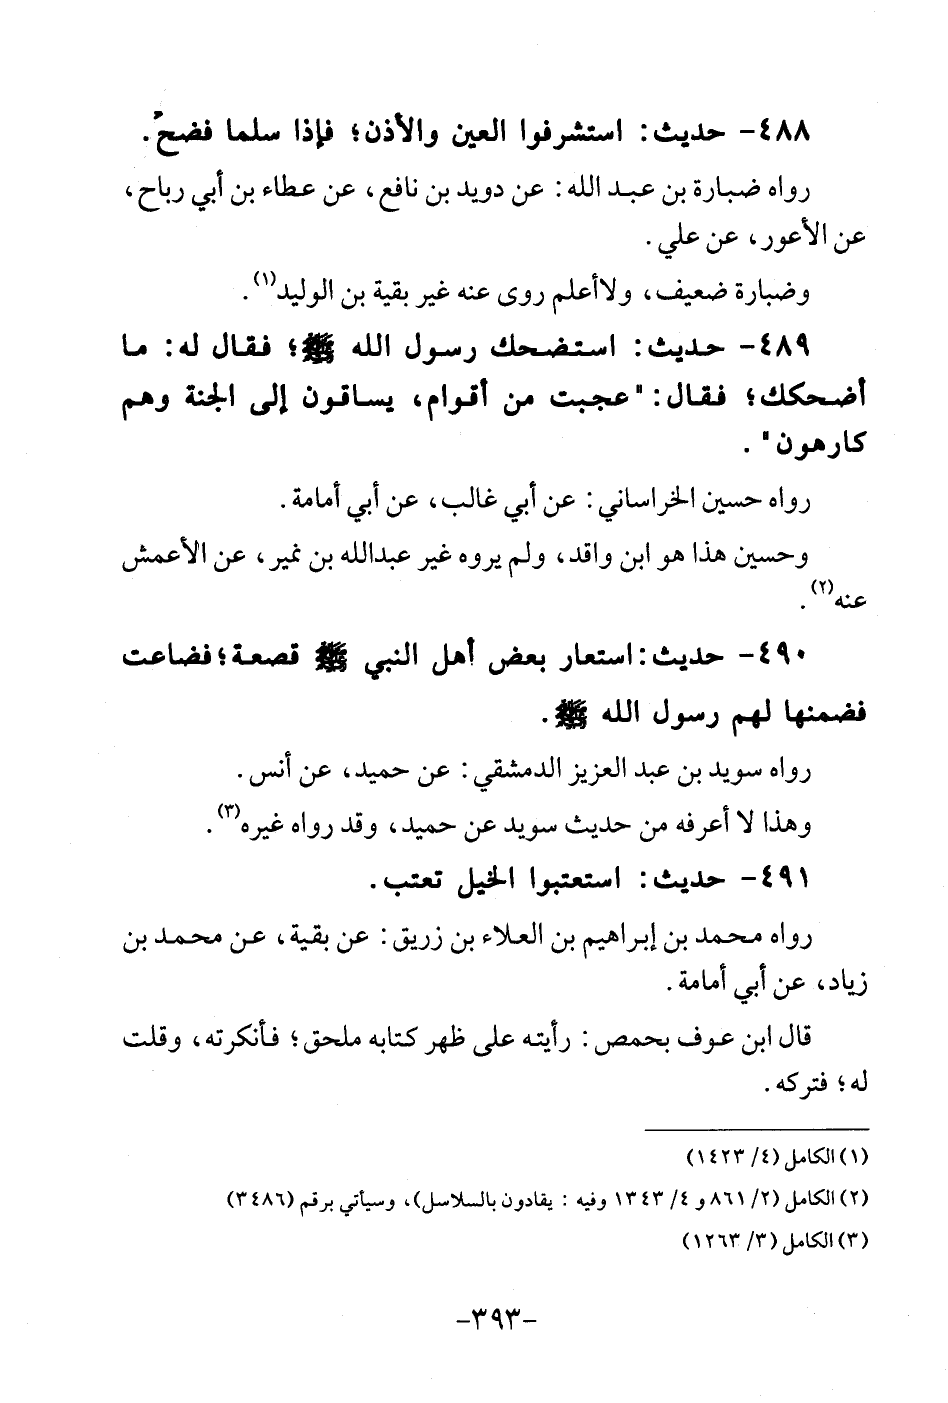 ٤٨٨- حديث: استشرفوا العين والأذن؛ فإذا سلما فضحِّ.
رواه ضبارة بن عبد الله: عن دويد بن نافع، عن عطاء بن أبي رباح،
عن الأعور، عن علي.
وضبارة ضعيف، ولاأعلم روى عنه غير بقية بن الوليد(١).
٤٨٩- حديث: استضحك رسول الله ﷺ؛ فقال له: ما
أضحكك؛ فقال: "عجبت من أقوام، يساقون إلى الجنة وهم
كارهون".
رواه حسين الخراساني: عن أبي غالب، عن أبي أمامة.
وحسين هذا هو ابن واقد، ولم يروه غير عبدالله بن نمير، عن الأعمش
عنه(٢).
٤٩٠- حديث: استعار بعض أهل النبي ﷺ قصعة؛فضاعت
فضمنها لهم رسول الله ﷺ.
رواه سويد بن عبد العزيز الدمشقي: عن حميد، عن أنس.
وهذا لا أعرفه من حديث سويد عن حميد، وقد رواه غيره(٣).
٤٩١- حديث: استعتبوا الخيل تعتب.
رواه محمد بن إبراهيم بن العلاء بن زريق: عن بقية، عن محمد بن
زياد، عن أبي أمامة.
قال ابن عوف بحمص: رأيته على ظهر كتابه ملحق؛ فأنكرته، وقلت
له؛ فتركه.
(١) الكامل (٤/ ١٤٢٣)
(٢) الكامل (٢/ ٨٦١ و ٤/ ١٣٤٣ وفيه : يقادون بالسلاسل)، وسيأتي برقم (٣٤٨٦)
(٣) الكامل (٣/ ١٢٦٣)
-٣٩٣-